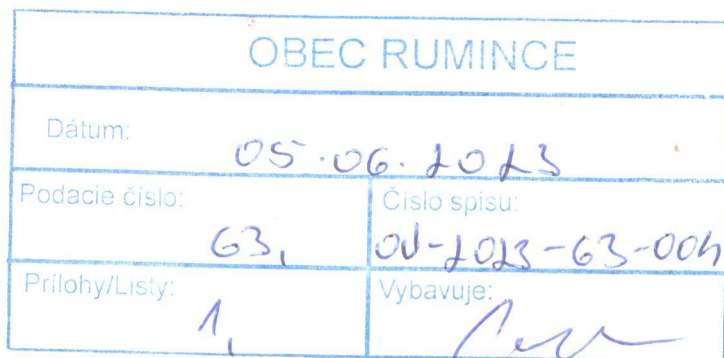 OBEC RUMINCE
Dátum:
05.06.2023
Podacie číslo:
63,
Číslo spisu:
Prílohy/Listy:
1,
Vybavuje: